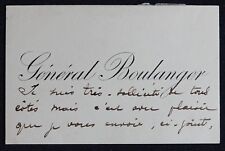 Général Boulanger
Je suis très-sollicité, de tout
côtés mais c'est avec plaisir
que je vous envoie, ci-joint,